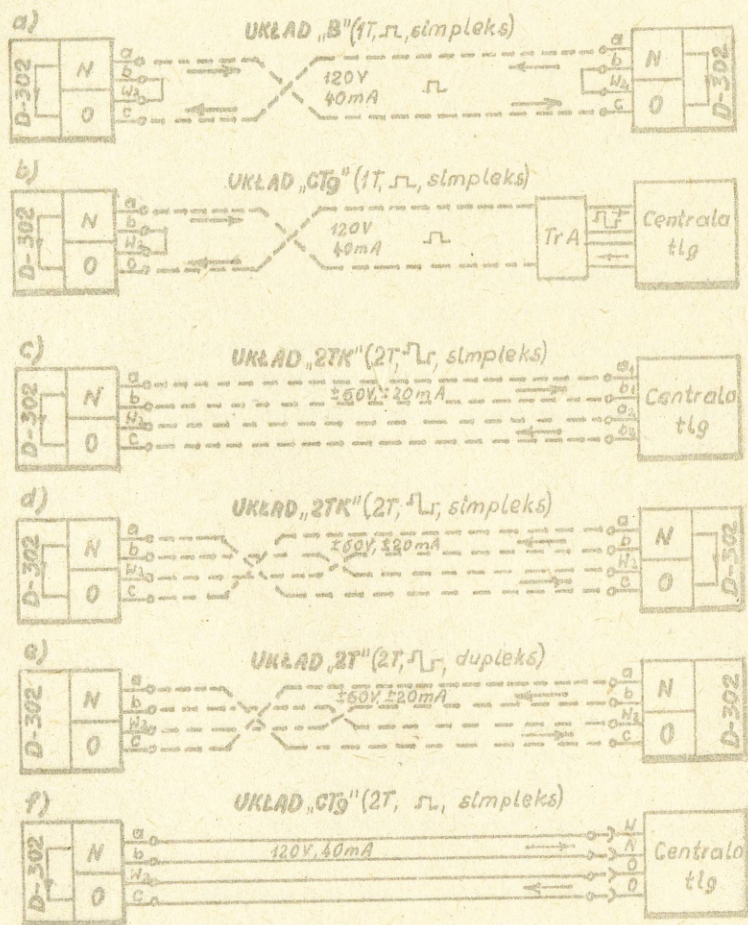 a) UKŁAD „B" (1T, simpleks)
D-302 N O a b W2 c
120V
40mA
a b W2 c N O D-302
b) UKŁAD „CTg" (1T, simpleks)
D-302 N O a b W2 c
120V
40mA
TrA
Centrala
tlg
c) UKŁAD „2TK" (2T, simpleks)
D-302 N O a b W2 c
±60V, ±20mA
a1 b1 a2
Centrala
tlg
d) UKŁAD „2TK" (2T, simpleks)
D-302 N O a b W2 c
±60V, ±20mA
a b W2 c N O D-302
e) UKŁAD „2T" (2T, dupleks)
D-302 N O a b W2 c
±60V, ±20mA
a b W2 c N O D-302
f) UKŁAD „CTg" (2T, simpleks)
D-302 N O a b W2 c
120V, 40mA
N N O O
Centrala
tlg